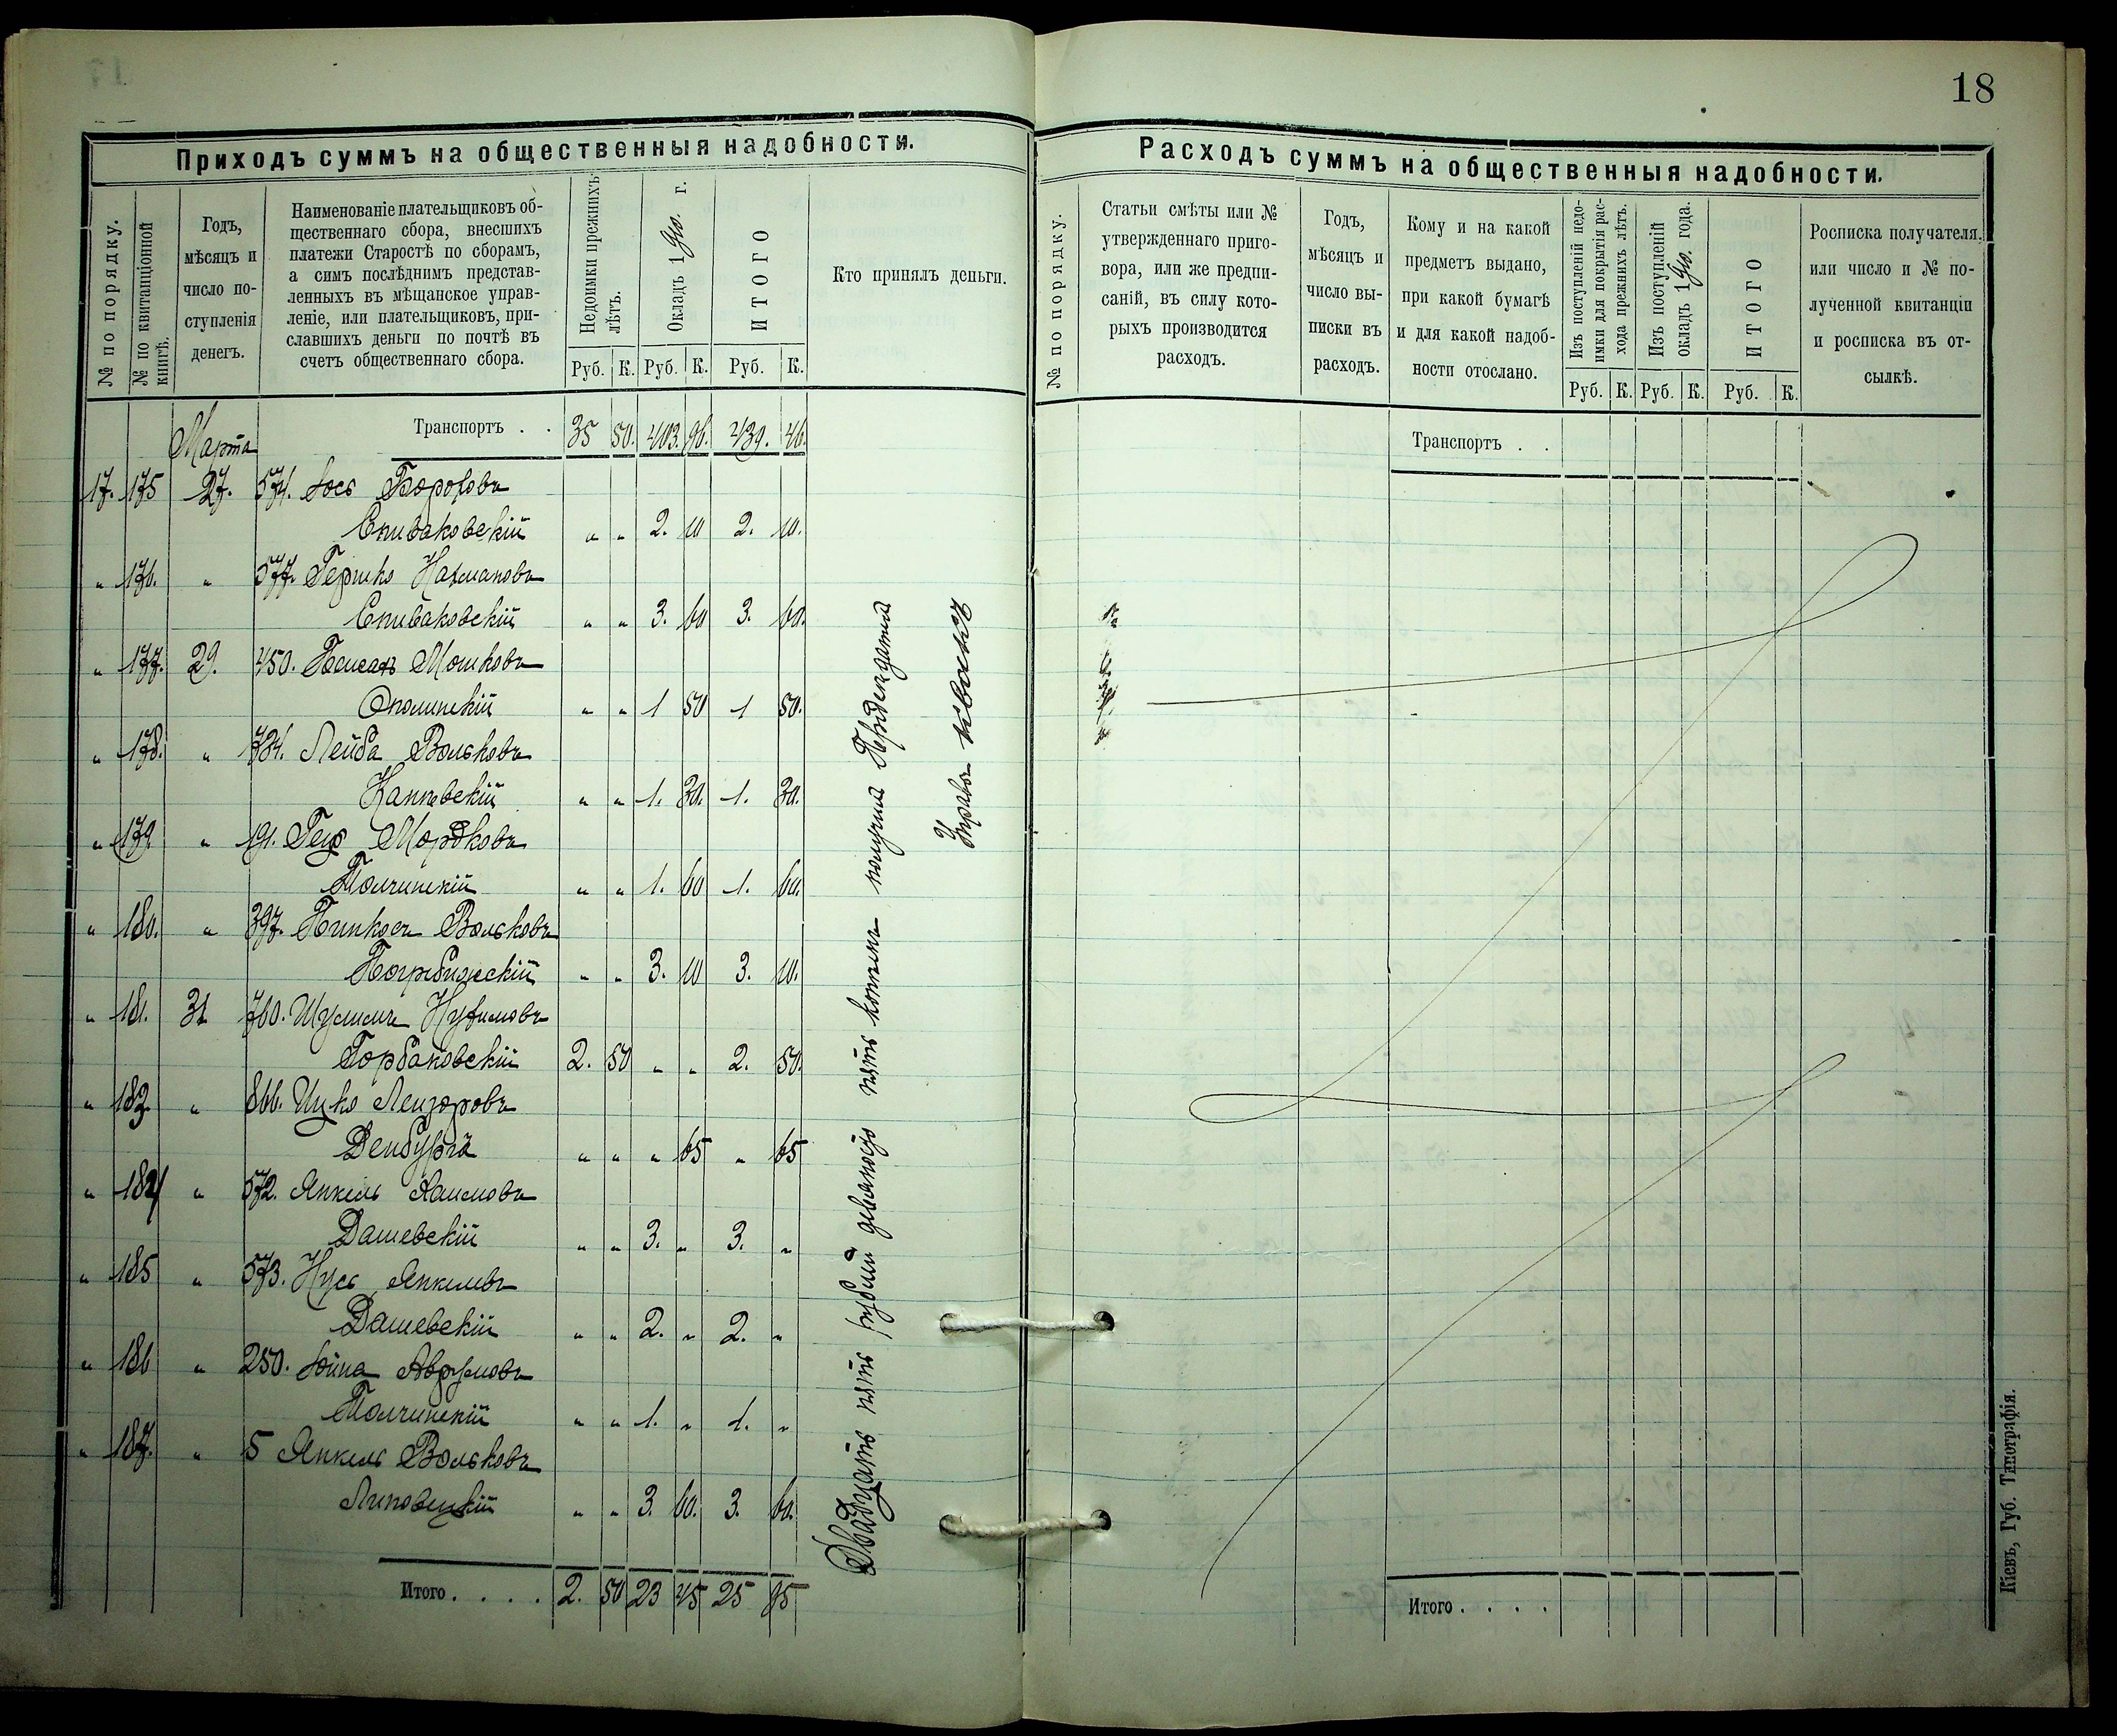 18
Приходъ суммъ на общественныя надобности.
№ по порядку.
№ по квитанціонной книгѣ.
Годъ,
мѣсяцъ и
число по-
ступленія
денегъ.
Наименованіе плательщиковъ об-
щественнаго сбора, внесшихъ
платежи Старостѣ по сборамъ,
а симъ послѣднимъ представ-
ленныхъ въ мѣщанское управ-
леніе, или плательщиковъ, при-
славшихъ деньги по почтѣ въ
счетъ общественнаго сбора.
Недоимки прежнихъ
лѣтъ.
Окладъ 1910. г.
ИТОГО
Руб. К. Руб. К. Руб. К.
Кто принялъ деньги.
Марта Транспортъ . . 35 50. 403. 96. 439. 46.
17. 175 27. 574. Іось Бороховъ
Спиваковскій " " 2. 10 2. 10.
" 176. " 577. Гершко Нахмановъ
Спиваковскій " " 3. 60 3. 60.
" 177. 29. 450. Мошковъ
Сполинскій " " 1 50 1 50.
" 178. " 784. Лейба Вольковъ
Каневскій " " 1. 30. 1. 30.
" 179 " 191. Мордковъ
Толчинскій " " 1. 60 1. 60.
" 180. " 397. Пинкосъ Вольковъ
Погребижскій " " 3. 10 3. 10.
" 181. 31 760. Шулимъ Нухимовъ
Горбаковскій 2. 50 " " 2. 50.
" 183. " 866. Ицко Лейзоровъ
" " " 65 " 65
" 184 " 572. Янкель Хаимовъ
Дашевскій " " 3. " 3. "
" 185 " 573. Нусь Янкелевъ
Дашевскій " " 2. " 2. "
" 186 " 250. Іойна Аврумовъ
Толчинскій " " 1. " 1. "
" 187. " 5 Янкель Вольковъ
Липовецкій " " 3. 60. 3. 60.
Итого . . . . 2. 50 23 45 25 95
Двадцать пять рублей девяносто пять копѣекъ получилъ
Управы
Расходъ суммъ на общественныя надобности.
№ по порядку.
Статьи смѣты или №
утвержденнаго приго-
вора, или же предпи-
саній, въ силу кото-
рыхъ производится
расходъ.
Годъ,
мѣсяцъ и
число вы-
писки въ
расходъ.
Кому и на какой
предметъ выдано,
при какой бумагѣ
и для какой надоб-
ности отослано.
Изъ поступленій недо-
имки для покрытія рас-
хода прежнихъ лѣтъ.
Изъ поступленій
окладъ 1910. года.
ИТОГО
Руб. К. Руб. К. Руб. К.
Росписка получателя,
или число и № по-
лученной квитанціи
и росписка въ от-
сылкѣ.
Транспортъ . .
Итого . . . .
Кіевъ, Губ. Типографія.